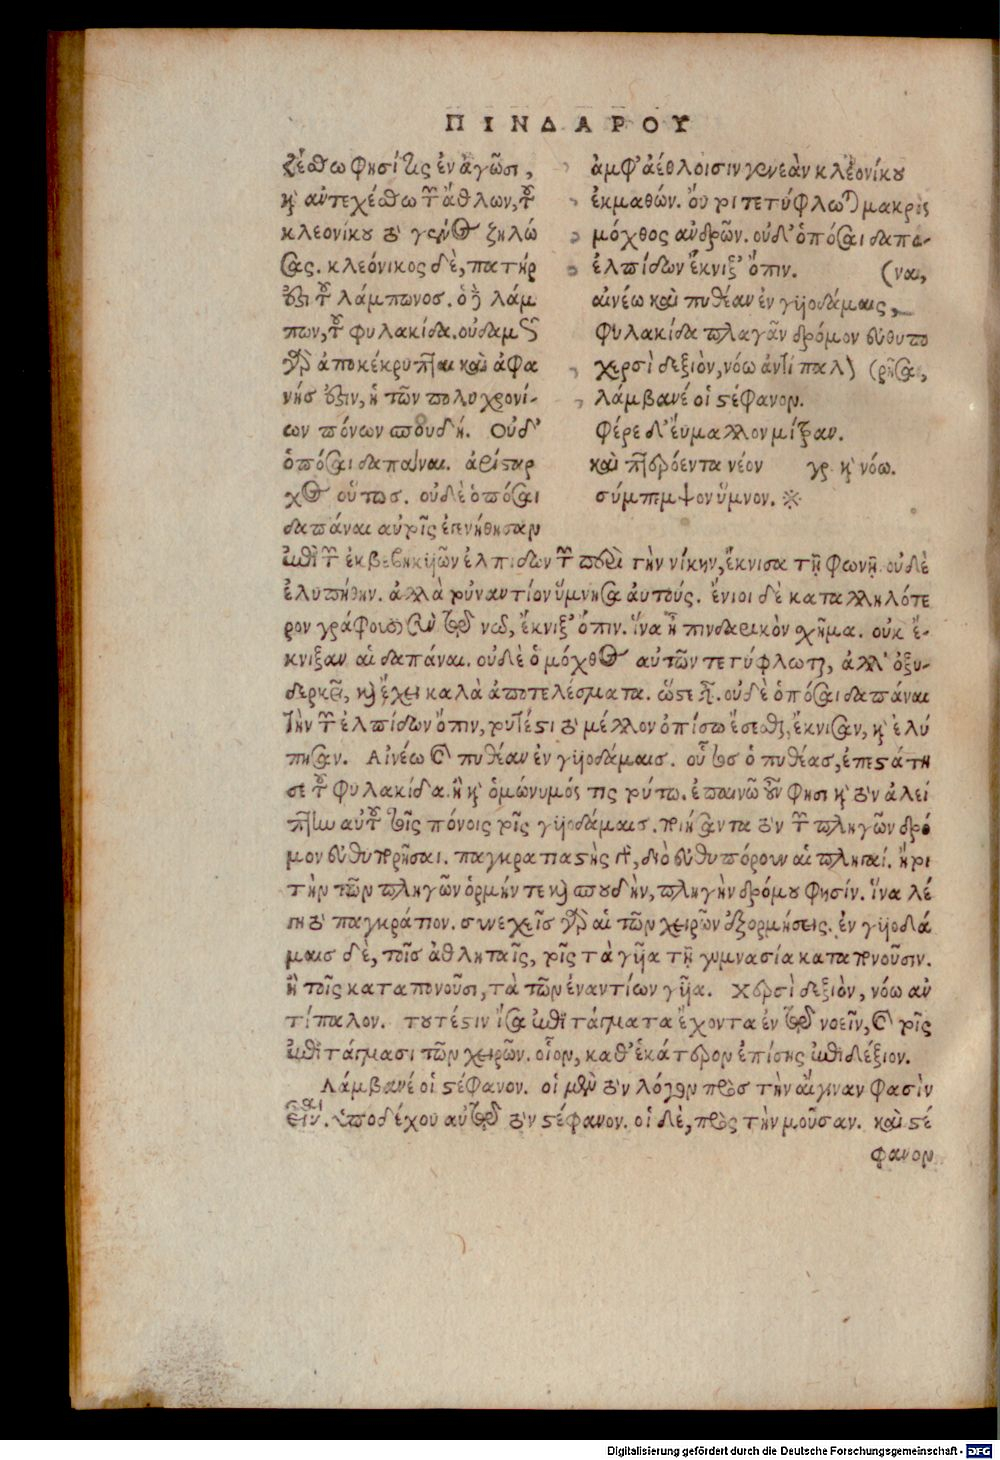 ΠΙΝΔΑΡΟΥ
ζέσθω φησί τις ἐν ἀγῶσι,
καὶ αὐτεχέσθω τῶν ἄθλων, τοῦ
κλεονίκου τὸ γένος ζηλώ
σας. κλεόνικος δὲ, πατήρ
ἐστι τοῦ λάμπωνοσ. ὁ δὲ λάμ
πων, τοῦ φυλακίδα. οὐδαμῶς
γὰρ ἀποκέκρυπται καὶ ἀφα
νήσ ἐστιν, ἡ τῶν πολυχρονί-
ων πόνων σπουδή. Οὐδ'
ὁπόσαι δαπάναι. ἀρίσταρ
χος οὕτωσ. οὐδὲ ὁπόσαι
δαπάναι αὐτοῖς ἐπενήθησαν
ἀμφ' ἀέθλοισιν γενεὰν κλεονίκου
ἐκμαθών. οὔτι τετύφλωται μακρὸς
μόχθος ἀνδρῶν. οὐδ' ὁπόσαι δαπά-
ἐλπίδων ἔκνιξ' ὄπιν. (ναι,
αἰνέω καὶ πυθέαν ἐν γυιοδάμαις,
φυλακίδα πλαγᾶν δρόμον εὐθυπο
χερσὶ δεξιὸν, νόω ἀντίπαλον (ρῆσαι,
λάμβανέ οἱ στέφανον.
φέρε δ' εὔμαλλον μίτραν.
καὶ πτερόεντα νέον γρ. καὶ νόω.
σύμπεμψον ὕμνον. ※
ἐπὶ τῶν ἐκβεβηκυιῶν ἐλπίδων τῶν περὶ τὴν νίκην, ἔκνισα τῇ φωνῇ. οὐδὲ
ἐλυπήθην. ἀλλὰ τὐναντίον ὕμνησα αὐτούς. ἔνιοι δὲ καταλληλότε
ρον γράφουσι σὺν τῷ νῦ, ἔκνιξ' ὄπιν. ἵνα ᾖ πινδαρικὸν σχῆμα. οὐκ ἔ-
κνιξαν αἱ δαπάναι. οὐδὲ ὁ μόχθος αὐτῶν τετύφλωται, ἀλλ' ὀξυ-
δερκεῖ, καὶ ἔχει καλὰ ἀποτελέσματα. ὥστε εἶναι. οὐδὲ ὁπόσαι δαπάναι
τὴν τῶν ἐλπίδων ὄπιν, τουτέστι τὸ μέλλον ὀπίσω ἔσεσθαι, ἔκνισαν, καὶ ἐλύ
πησαν. Αἰνέω καὶ πυθέαν ἐν γυιοδάμαισ. οὗτος ὁ πυθέας, ἐπεστάτη
σε τοῦ φυλακίδα. ἢ καὶ ὁμώνυμός τις τούτω. ἐπαινῶ οὖν φησι καὶ τὸν ἀλεί
πτην αὐτοῦ τοῖς πόνοις τοῖς γυιοδάμαισ. ποιήσαντα τὸν τῶν πληγῶν δρό
μον εὐθυπορῆσαι. παγκρατιαστὴς γὰρ, διὸ εὐθυπόρουν αἱ πληγαί. ἤτοι
τὴν τῶν πληγῶν ὁρμήν τε καὶ σπουδὴν, πληγὴν δρόμου φησίν. ἵνα λέ
γῃ τὸ παγκράτιον. συνεχεῖς γὰρ αἱ τῶν χειρῶν ἐξορμήσεις. ἐν γυιοδά
μαισ δὲ, τοῖς ἀθληταῖς, τοῖς τὰ γυῖα τῇ γυμνασία καταπονοῦσιν.
ἢ τοῖς καταπονοῦσι, τὰ τῶν ἐναντίων γυῖα. Χερσὶ δεξιὸν, νόω ἀν
τίπαλον. τουτέστιν ἴσα ἐπιτάγματα ἔχοντα ἐν τῷ νοεῖν, καὶ τοῖς
ἐπιτάγμασι τῶν χειρῶν. οἷον, καθ' ἑκάτερον ἐπίσης ἐπιδέξιον.
Λάμβανέ οἱ στέφανον. οἱ μὲν τὸν λόγον πρὸς τὴν αἴγιναν φασὶν
εἶναι. ὑποδέχου αὐτῷ τὸν στέφανον. οἱ δὲ, πρὸς τὴν μοῦσαν. καὶ στέ
φανον
Digitalisierung gefördert durch die Deutsche Forschungsgemeinschaft - DFG